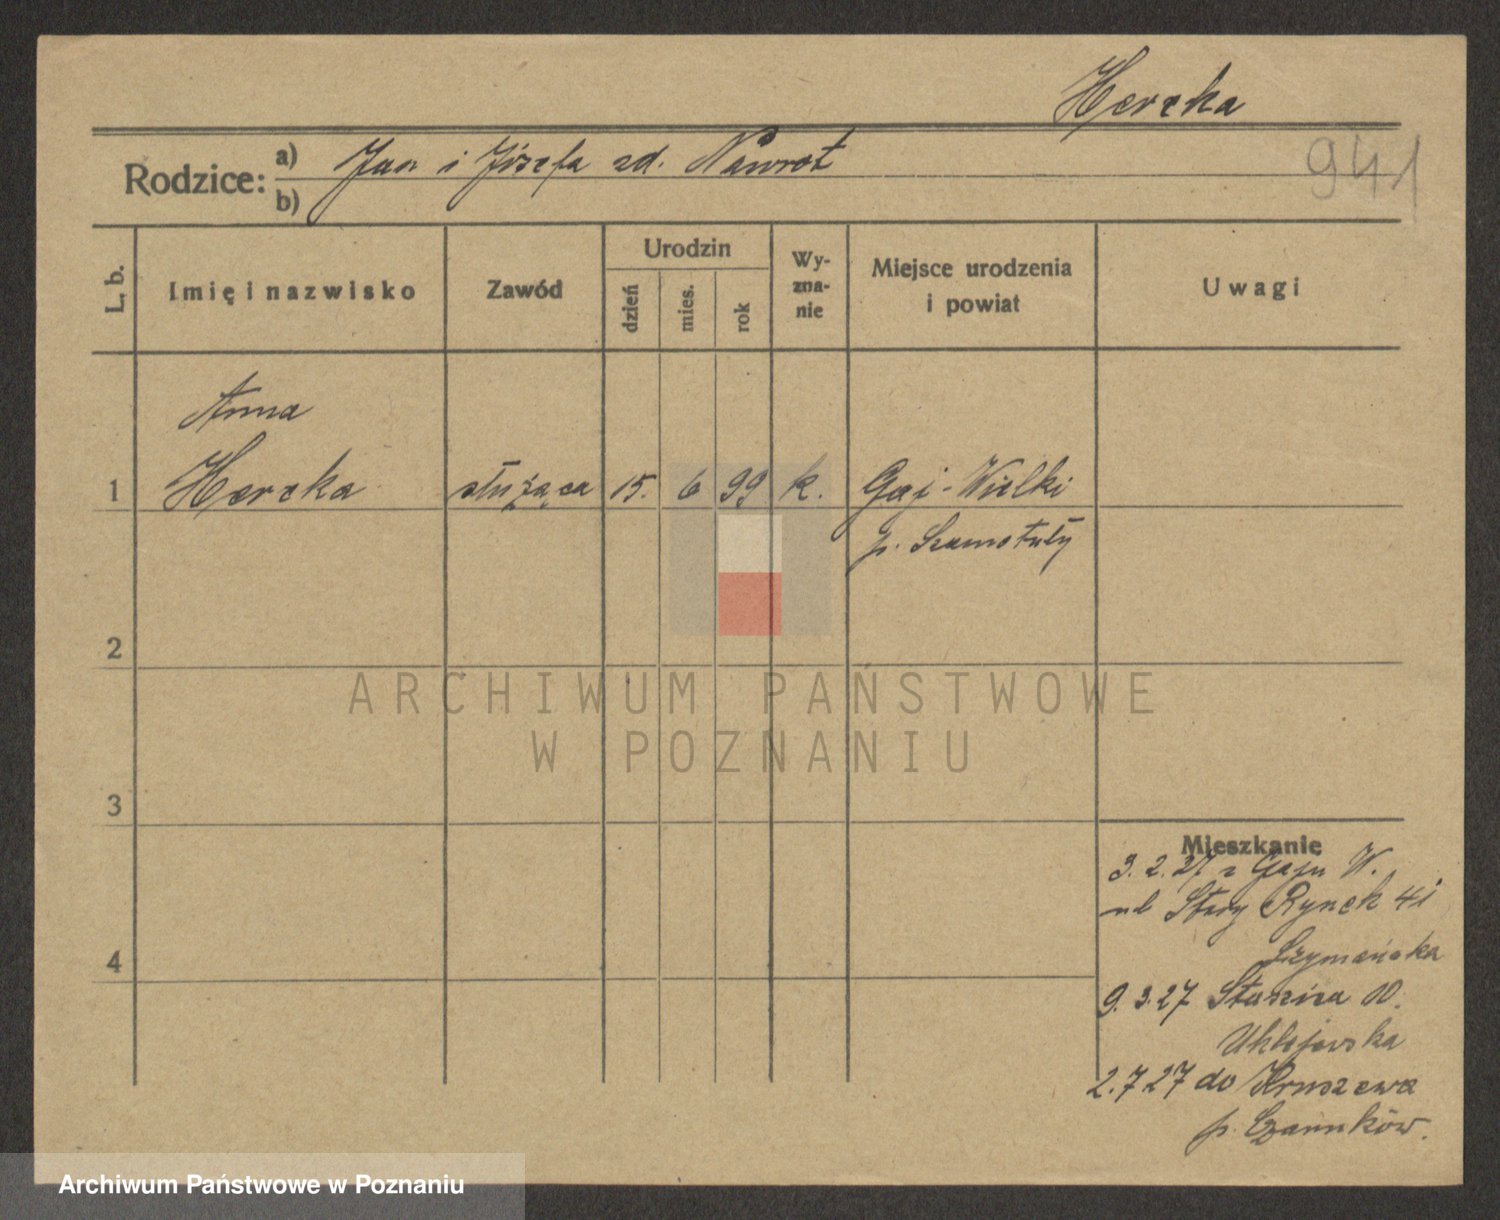 Herzka
941
Rodzice: a) Jan i Józefa zd. Nawrot
b)
L. b.
Imię i nazwisko
Zawód
Urodzin
dzień
mies.
rok
Wy-
zna-
nie
Miejsce urodzenia
i powiat
Uwagi
Anna
1 Herzka służąca 15. 6 99 k. Gaj-Wielki
p. Szamotuły
2
3
4
Mieszkanie
3.2.27 z Gaju W.
Stary Rynek 41
Szymańska
9.3.27 Staszica 10.
2.7 27 do Kruszewa
p. Czarnków.
ARCHIWUM PAŃSTWOWE
W POZNANIU
Archiwum Państwowe w Poznaniu